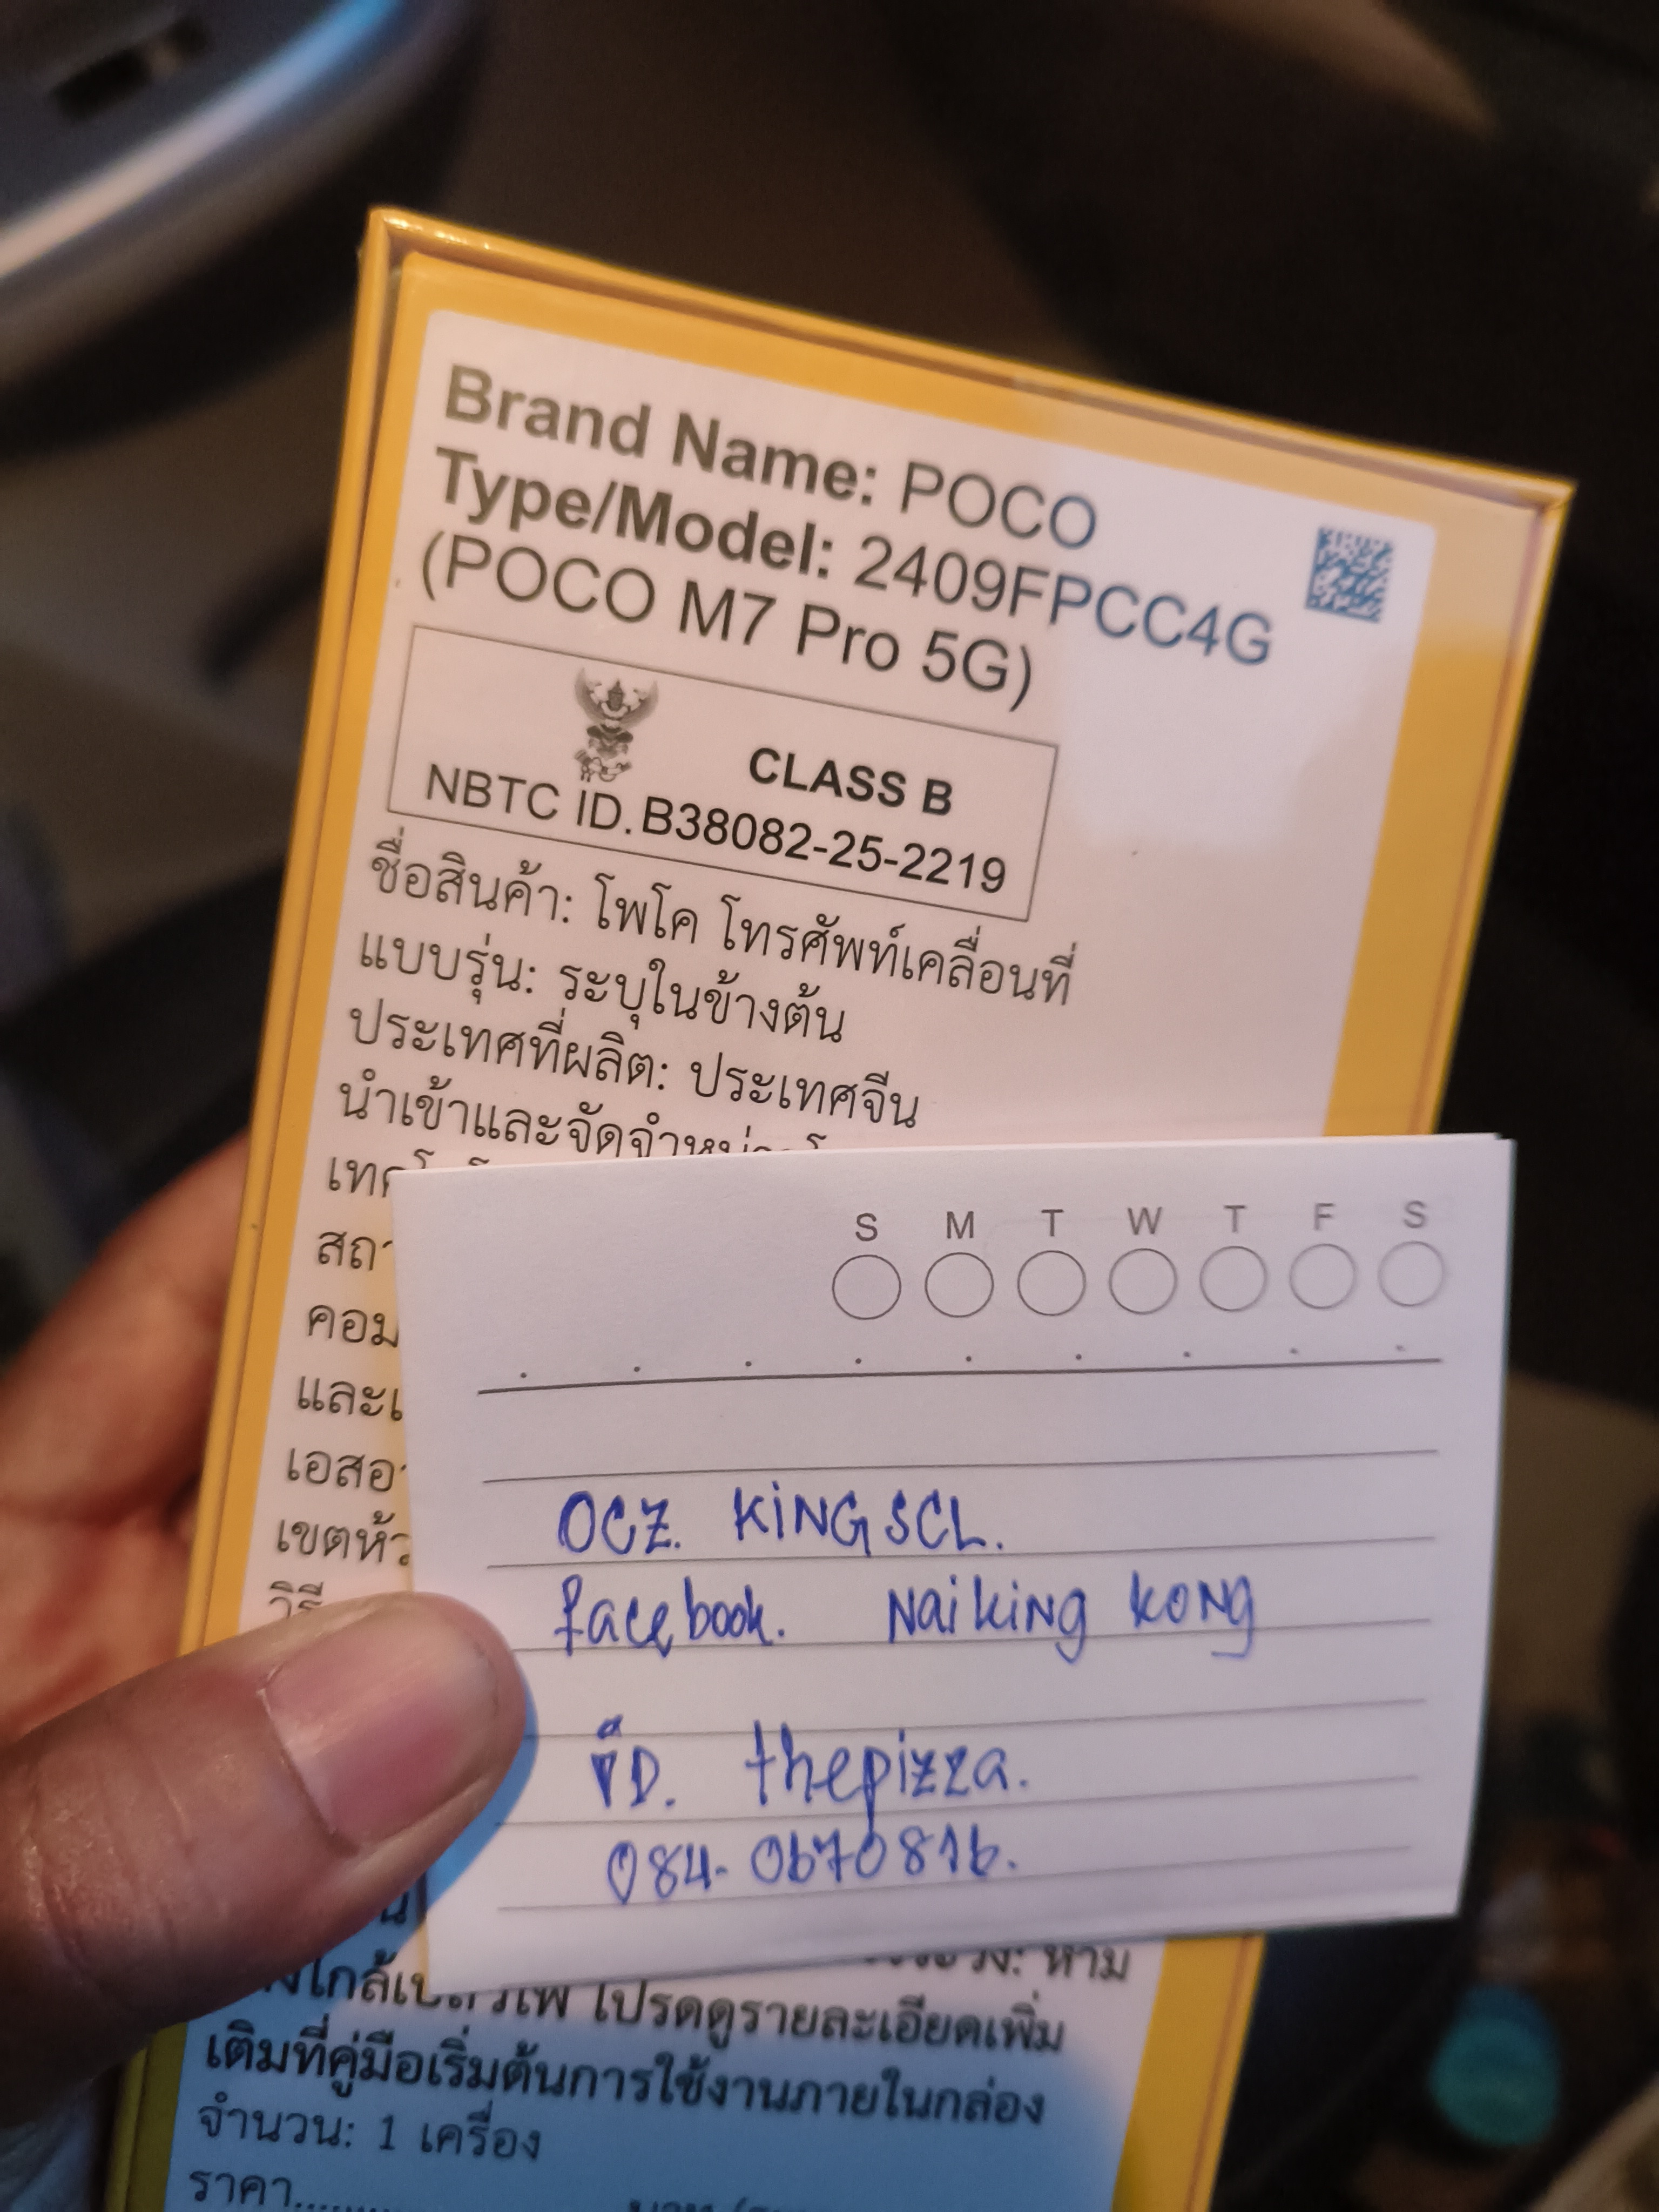 Brand Name: POCO
Type/Model: 2409FPCC4G
(POCO M7 Pro 5G)
CLASS B
NBTC ID. B38082-25-2219
ชื่อสินค้า: โพโค โทรศัพท์เคลื่อนที่
แบบรุ่น: ระบุในข้างต้น
ประเทศที่ผลิต: ประเทศจีน
นำเข้าและจัดจำหน่ายโ
S M T W T F S
OCZ. KiNGSCL.
facebook. Naiking kong
iD. thepizza.
084-0670816.
หาม
โปรดดูรายละเอียดเพิ่ม
เติมที่คู่มือเริ่มต้นการใช้งานภายในกล่อง
จำนวน: 1 เครื่อง
ราคา..........